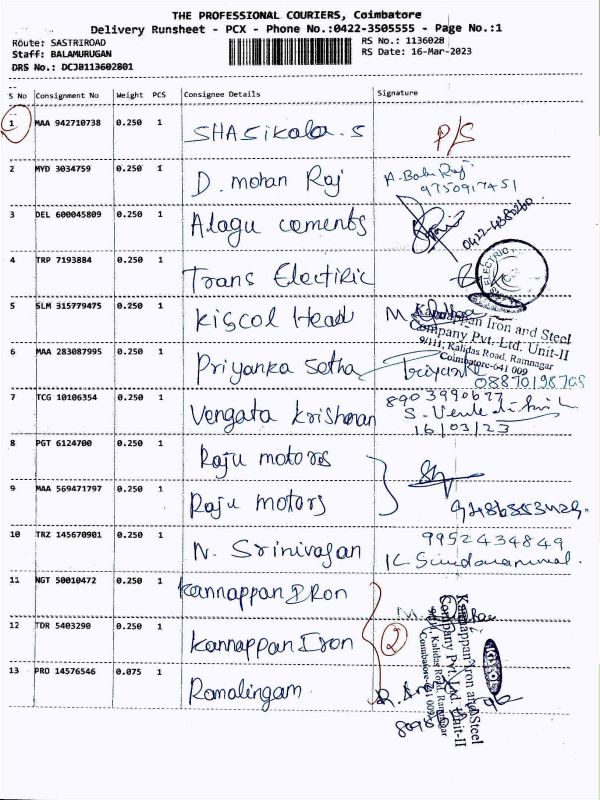 THE PROFESSIONAL COURIERS, Coimbatore
Delivery Runsheet - PCX - Phone No.:0422-3505555 - Page No.:1
Route: SASTRIROAD RS No.: 1136028
Staff: BALAMURUGAN RS Date: 16-Mar-2023
DRS No.: DCJB113602801
S No Consignment No Weight PCS Consignee Details Signature
1 MAA 942710738 0.250 1 SHASikala.S P/S
2 MYD 3034759 0.250 1 D. mohan Raj A. Babu Raj
9750917451
3 DEL 600045809 0.250 1 Alagu cements
4 TRP 7193884 0.250 1 Trans Electiric
ELECTRIC
5 SLM 315779475 0.250 1 Kiscol Head
Kannappan Iron and Steel
Company Pvt. Ltd. Unit-II
9/111, Kalidas Road, Ramnagar
Coimbatore-641 009
6 MAA 283087995 0.250 1 Priyanka Sotha Priyanka
08870198705
7 TCG 10106354 0.250 1 Vengata krishanan 8903990677
16/03/23
8 PGT 6124700 0.250 1 Raju motors
9 MAA 569471797 0.250 1 Raju motors
10 TRZ 145670901 0.250 1 N. Srinivasan 9952434849
11 NGT 50010472 0.250 1 Kannappan IRon
12 TDR 5403290 0.250 1 Kannappan Iron 2
13 PRO 14576546 0.075 1 Ramalingam
Kannappan Iron and Steel
Company Pvt. Ltd. Unit-II
9/111, Kalidas Road, Ramnagar
Coimbatore-641 009